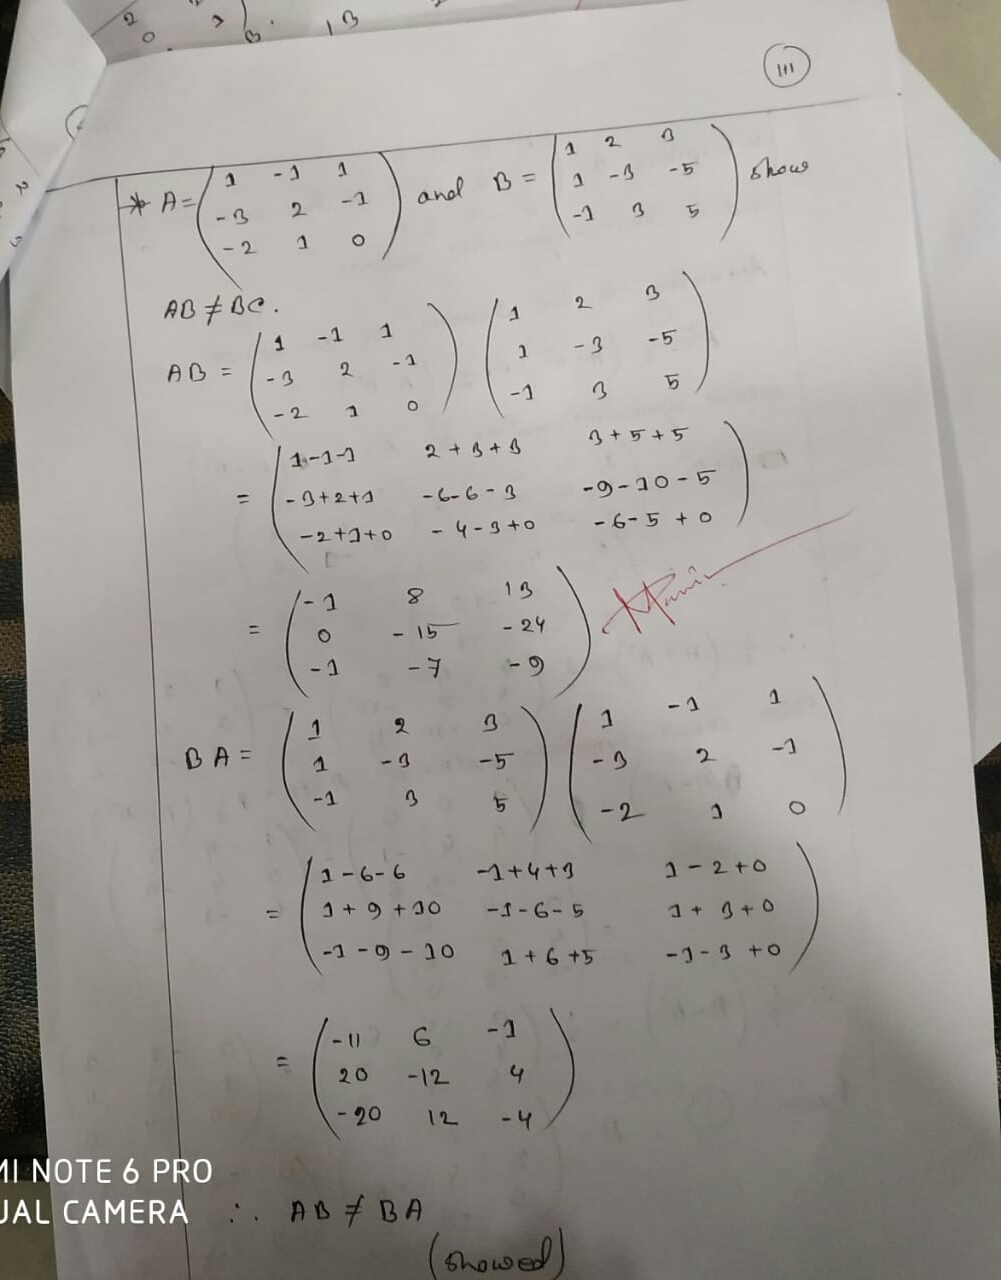 111
* A = ( 1 -1 1
-3 2 -1
-2 1 0 ) and B = ( 1 2 3
1 -3 -5
-1 3 5 ) show
AB ≠ BC.
AB = ( 1 -1 1
-3 2 -1
-2 1 0 ) ( 1 2 3
1 -3 -5
-1 3 5 )
= ( 1-1-1 2+3+3 3+5+5
-3+2+1 -6-6-3 -9-10-5
-2+1+0 -4-3+0 -6-5+0 )
= ( -1 8 13
0 -15 -24
-1 -7 -9 )
BA = ( 1 2 3
1 -3 -5
-1 3 5 ) ( 1 -1 1
-3 2 -1
-2 1 0 )
= ( 1-6-6 -1+4+3 1-2+0
1+9+10 -1-6-5 1+3+0
-1-9-10 1+6+5 -1-3+0 )
= ( -11 6 -1
20 -12 4
-20 12 -4 )
∴ AB ≠ BA
(showed)
MI NOTE 6 PRO
UAL CAMERA